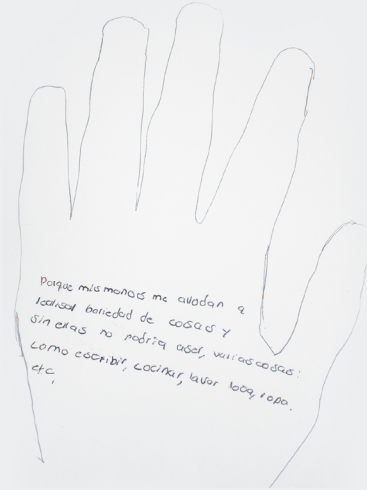 Porque mis manos me ayudan a
realisar bariedad de cosas y
sin ellas no podria aser, varias cosas:
como escribir, cocinar, lavar loza, ropa.
etc,